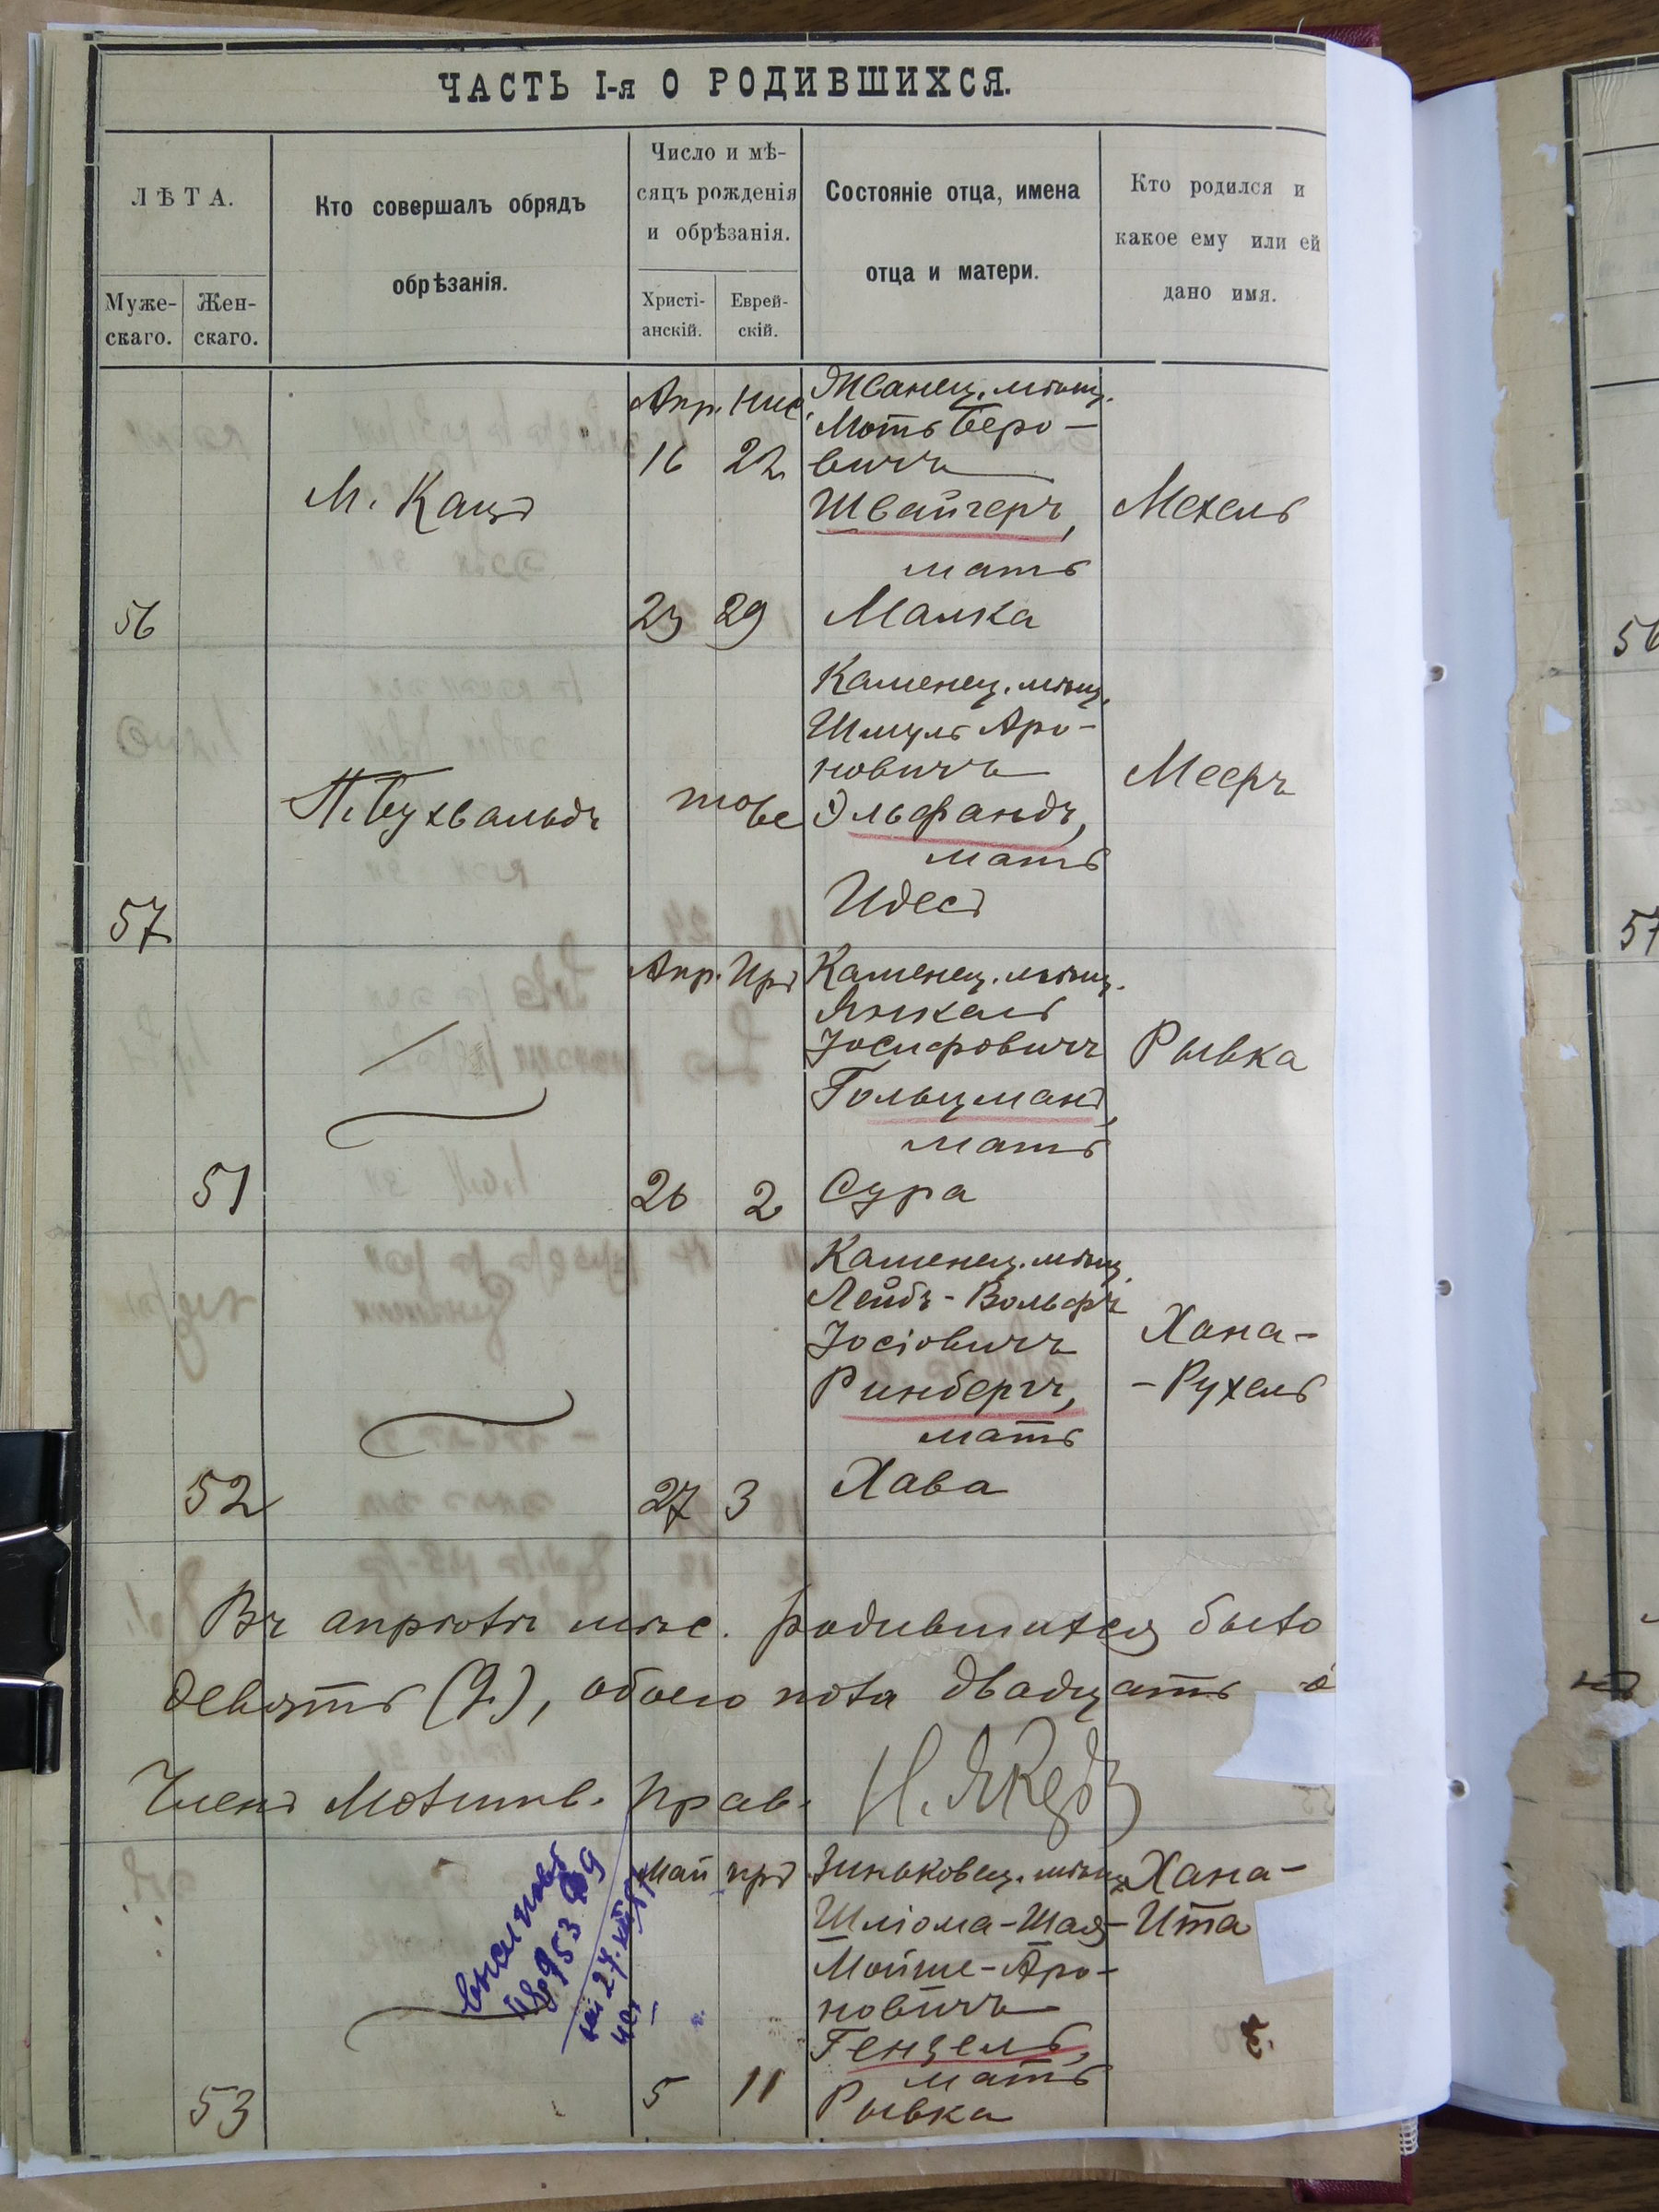 ЧАСТЬ I-я О РОДИВШИХСЯ.
ЛѢТА.
Муже-
скаго.
Жен-
скаго.
Кто совершалъ обрядъ
обрѣзанія.
Число и мѣ-
сяцъ рожденія
и обрѣзанія.
Христі-
анскій.
Еврей-
скій.
Состояніе отца, имена
отца и матери.
Кто родился и
какое ему или ей
дано имя.
56
М. Кацъ
Апр. Нис.
16 22
23 29
Жванец. мѣщ.
Моть Беро-
вичъ
Швайгеръ,
мать
Малка
Мехель
57
П. Бухвальдъ
тоже
Каменец. мѣщ.
Шмуль Аро-
новичъ
Эльфандъ,
мать
Идесъ
Мееръ
51
Апр. Иръ
26 2
Каменец. мѣщ.
Янкель
Іосифовичъ
Гольцманъ,
мать
Сура
Рывка
52
27 3
Каменец. мѣщ.
Лейбъ-Вольфъ
Іосіовичъ
Ринбергъ,
мать
Хава
Хана-
-Рухель
Въ апрѣлѣ мѣс. родившихся было
девять (9), обоего пола двадцать
Членъ Молитв. Прав.
53
Май Иръ
5 11
Зиньковец. мѣщ.
Шліома-Шая-
Мойше-Аро-
новичъ
Гензель,
мать
Рывка
Хана-
Ита
56
57